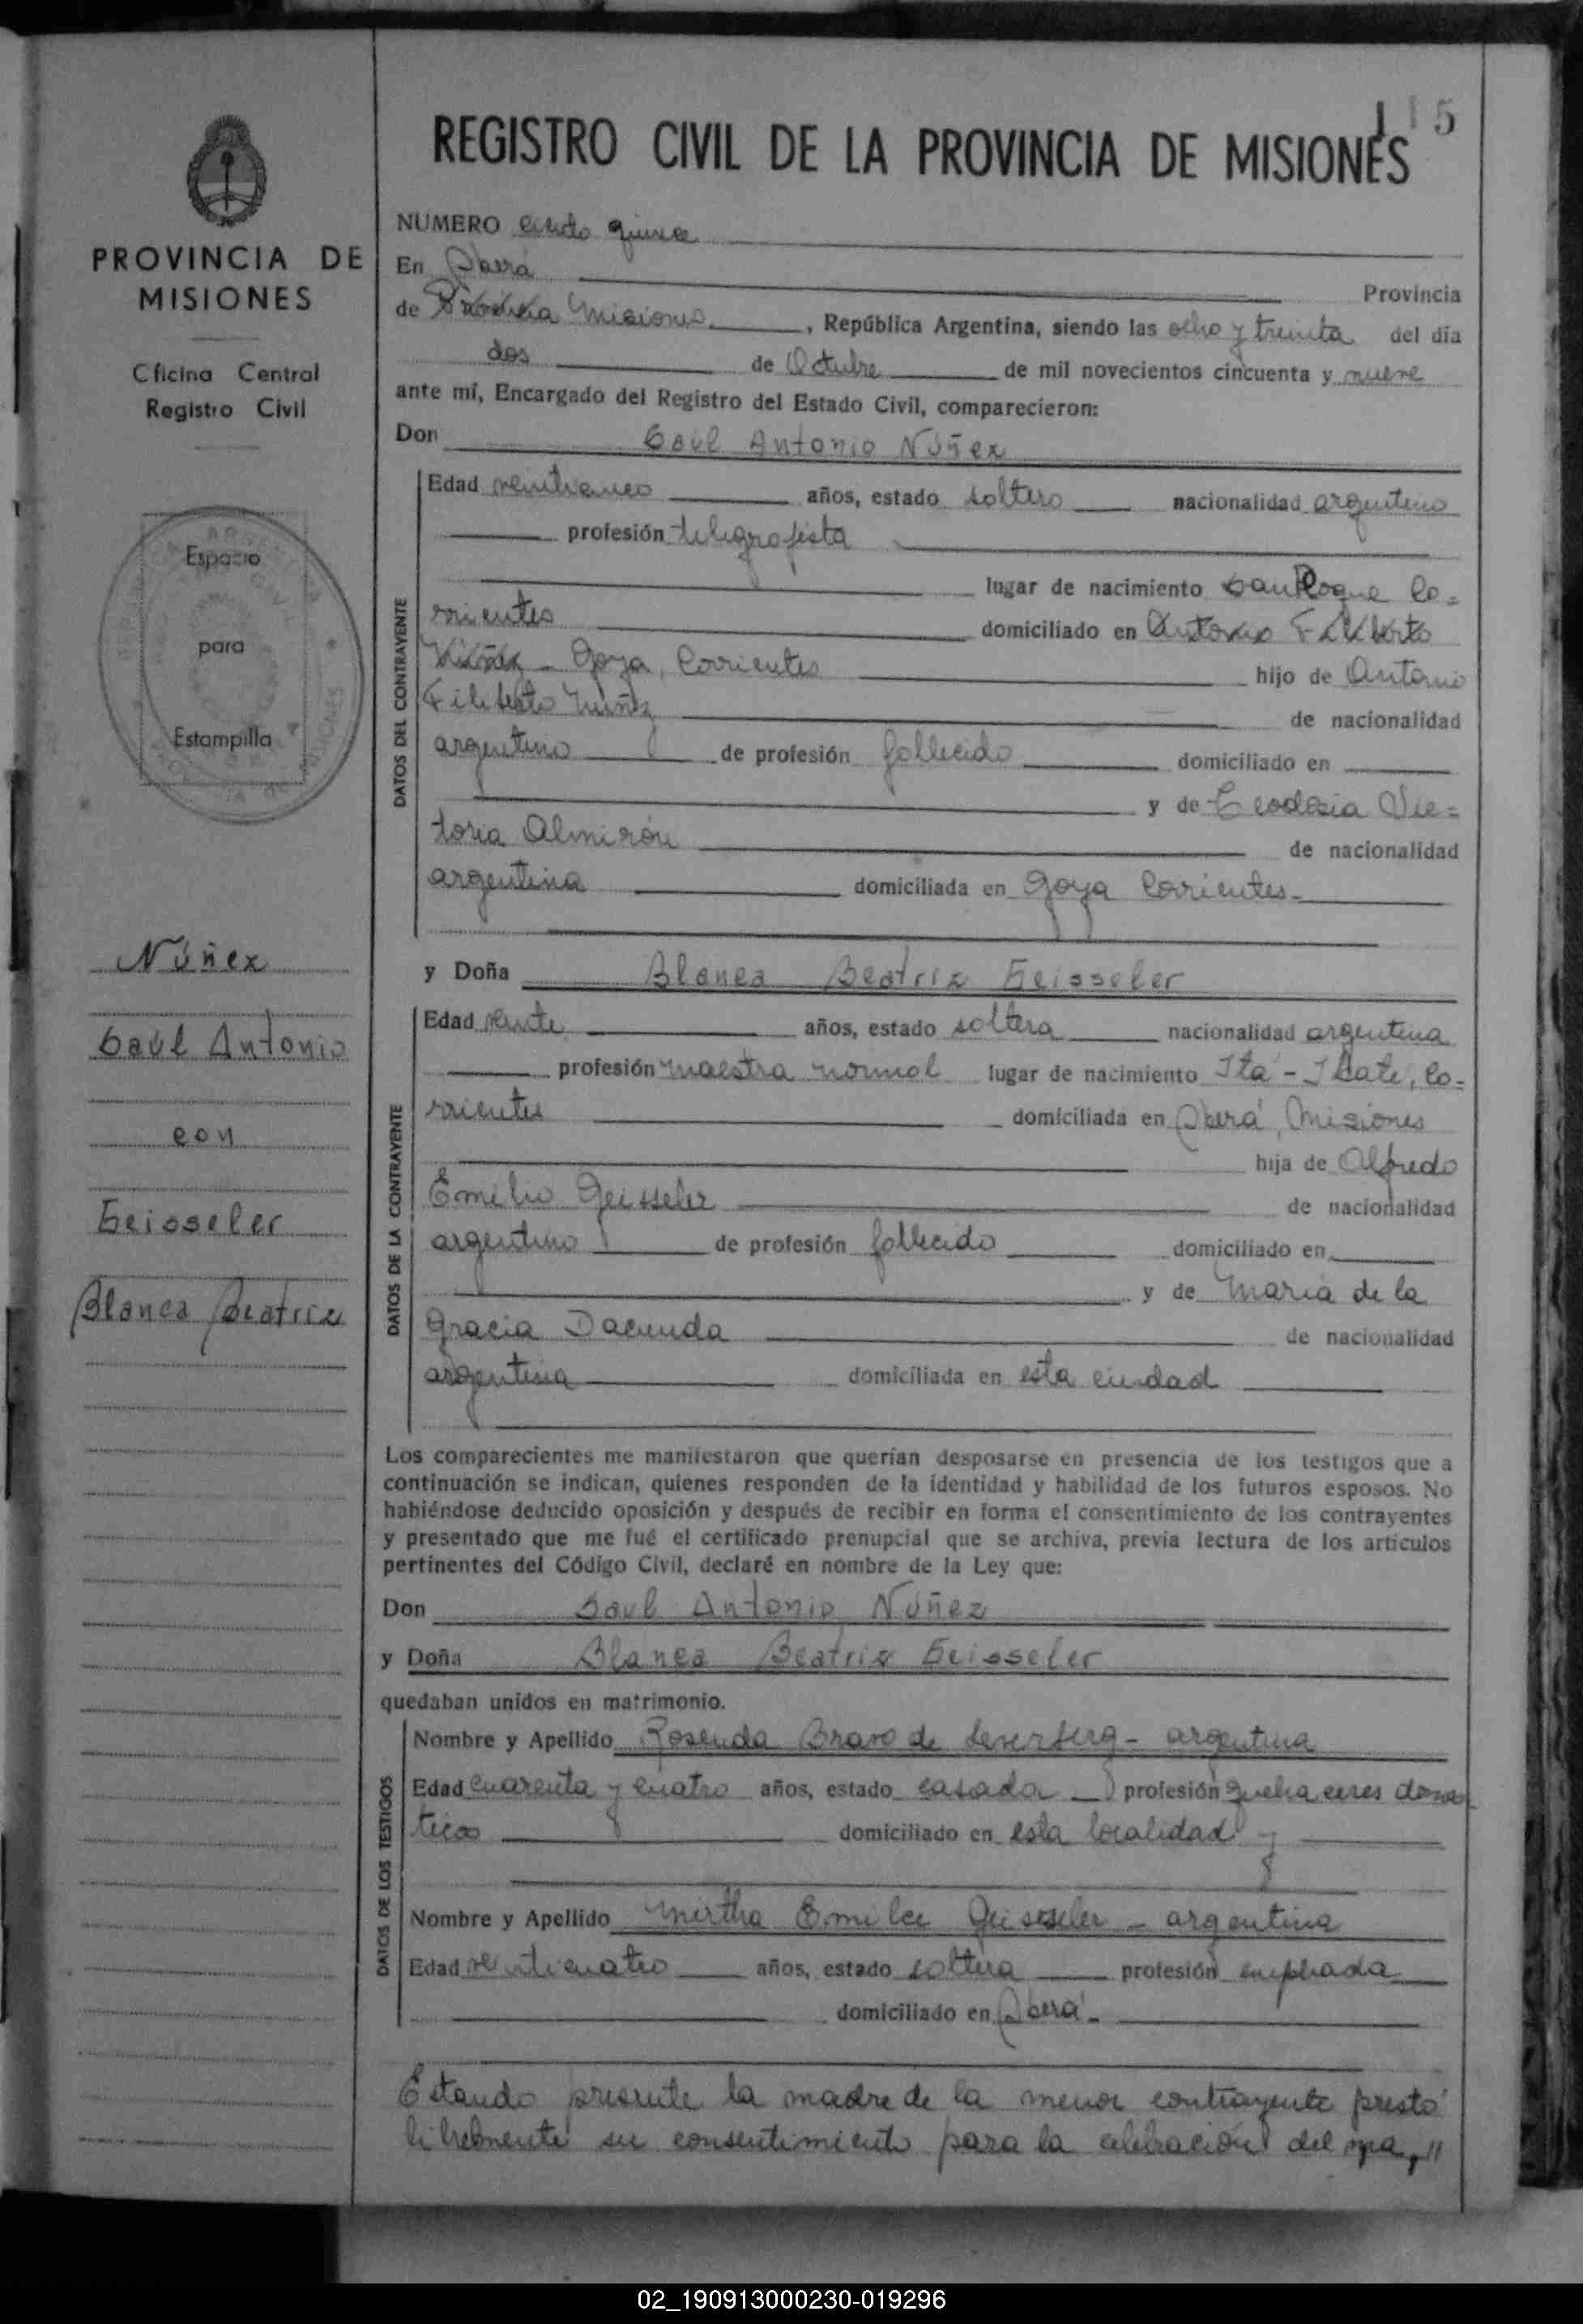 115
REGISTRO CIVIL DE LA PROVINCIA DE MISIONES
PROVINCIA DE
MISIONES
Oficina Central
Registro Civil
Espacio
para
Estampilla
Núñez
Saúl Antonio
con
Geisseler
Blanca Beatriz
NUMERO ciento quince
En Oberá Provincia
de Misiones, República Argentina, siendo las ocho y treinta del día
dos de Octubre de mil novecientos cincuenta y nueve
ante mí, Encargado del Registro del Estado Civil, comparecieron:
Don Saúl Antonio Núñez
DATOS DEL CONTRAYENTE
Edad años, estado soltero nacionalidad argentino
profesión telegrafista
lugar de nacimiento San Roque Co=
rrientes domiciliado en Antonio Filiberto
Núñez - Goya, Corrientes hijo de Antonio
Filiberto Núñez de nacionalidad
argentino de profesión fallecido domiciliado en
y de Teodosia Vic=
toria Almirón de nacionalidad
argentina domiciliada en Goya Corrientes-
y Doña Blanca Beatriz Geisseler
DATOS DE LA CONTRAYENTE
Edad veinte años, estado soltera nacionalidad argentina
profesión maestra normal lugar de nacimiento Itá - Ibate, Co=
rrientes domiciliada en Oberá, Misiones
hija de Alfredo
Emilio Geisseler de nacionalidad
argentino de profesión fallecido domiciliado en
y de María de la
Gracia Dacunda de nacionalidad
argentina domiciliada en esta ciudad
Los comparecientes me manifestaron que querían desposarse en presencia de los testigos que a
continuación se indican, quienes responden de la identidad y habilidad de los futuros esposos. No
habiéndose deducido oposición y después de recibir en forma el consentimiento de los contrayentes
y presentado que me fué el certificado prenupcial que se archiva, previa lectura de los artículos
pertinentes del Código Civil, declaré en nombre de la Ley que:
Don Saul Antonio Núñez
y Doña Blanca Beatriz Geisseler
quedaban unidos en matrimonio.
DATOS DE LOS TESTIGOS
Nombre y Apellido Rosenda Bravo de - argentina
Edad cuarenta y cuatro años, estado casada profesión quehaceres domes
ticos domiciliado en esta localidad y
Nombre y Apellido Mirtha Emilce Geisseler - argentina
Edad veinticuatro años, estado soltera profesión empleada
domiciliado en Oberá-
Estando presente la madre de la menor contrayente prestó
libremente su consentimiento para la celebración del ma,"
02_190913000230-019296